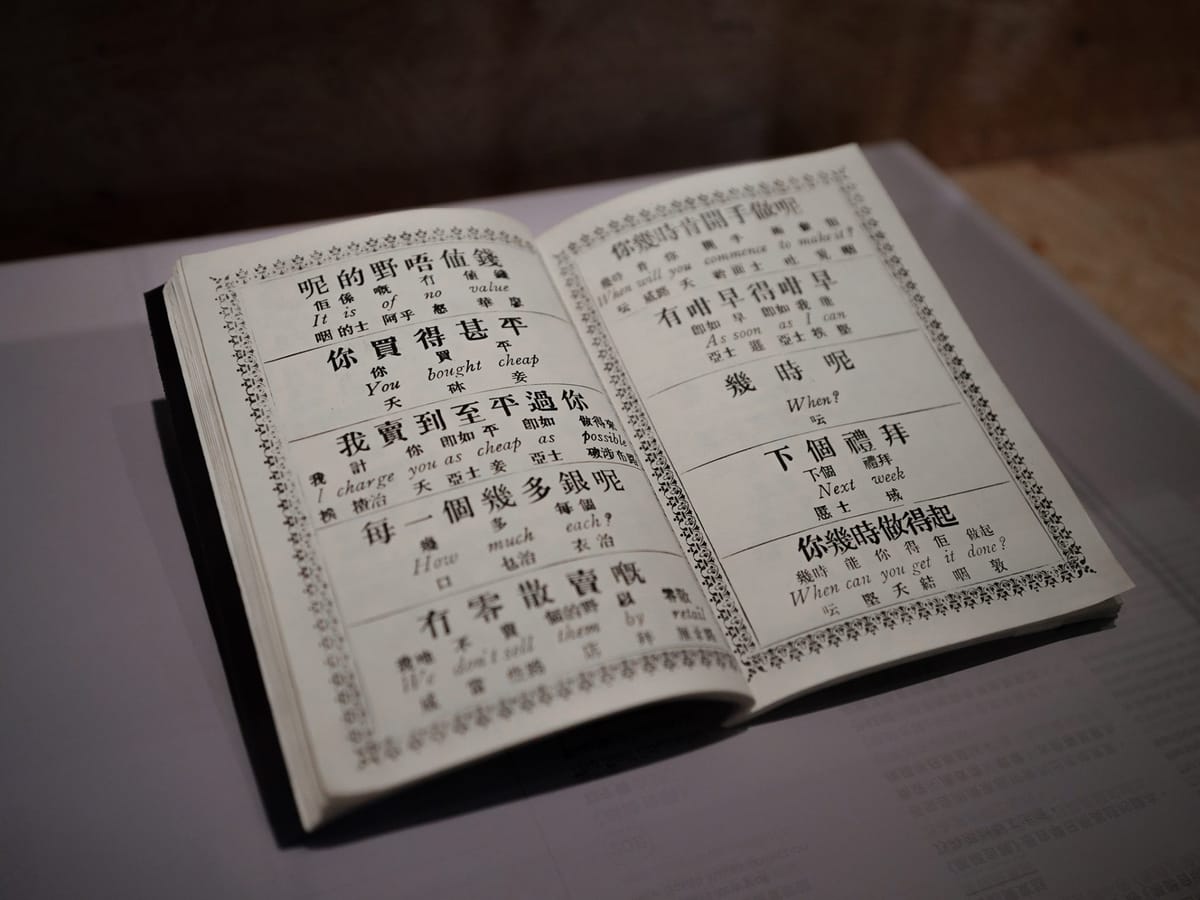 呢的野唔值錢
佢係嘅冇值錢
It is of no value
咽的士阿乎
你買得甚平
你買平
You bought cheap
天砵妾
我賣到至平過你
我計你即如平即如做得來
I charge you as cheap as possible
挨揸治天亞士妾亞士
每一個幾多銀呢
幾多每個
How much each?
口乜治衣治
冇零散賣嘅
不賣個的野零散
We don't sell them by retail
威當
你幾時肯開手做呢
幾時肯你開手
When will you commence to make it?
坛威路天
有咁早得咁早
即如早即如我能
As soon as I can
亞士
幾時呢
When?
坛
下個禮拜
下個禮拜
Next week
士域
你幾時做得起
幾時能你得佢做起
When can you get it done?
坛堅天結咽敦